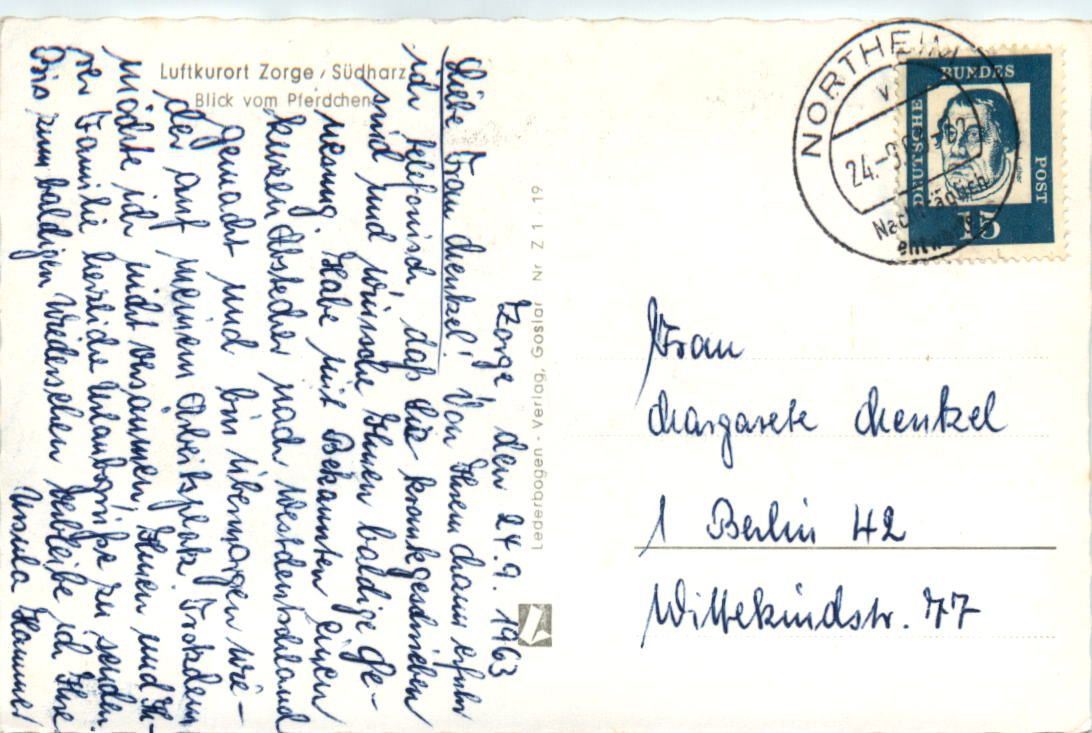 Luftkurort Zorge / Südharz
Blick vom Pferdchen
Zorge, den 24.9.1963
Liebe Frau Menkel! Von Ihrem Mann erfuhr
ich telefonisch, daß Sie krankgeschrieben
sind und wünsche Ihnen baldige Ge-
nesung. Habe mit Bekannten einen
kurzen Abstecher nach Westdeutschland
gemacht und bin übermorgen wie-
der auf meinem Arbeitsplatz. Trotzdem
möchte ich nicht versäumen, Ihnen und Ih-
rer Familie herzliche Urlaubsgrüße zu senden.
Bis zum baldigen Wiedersehen verbleibe ich Ihre
Ursula Hammer
Lederbogen - Verlag, Goslar Nr Z 1 · 19
NORTHEIM
24.-9.
Nachträglich
entwertet
DEUTSCHE
BUNDES
POST
15
Luther
Frau
Margarete Menkel
1 Berlin 42
Wittekindstr. 77